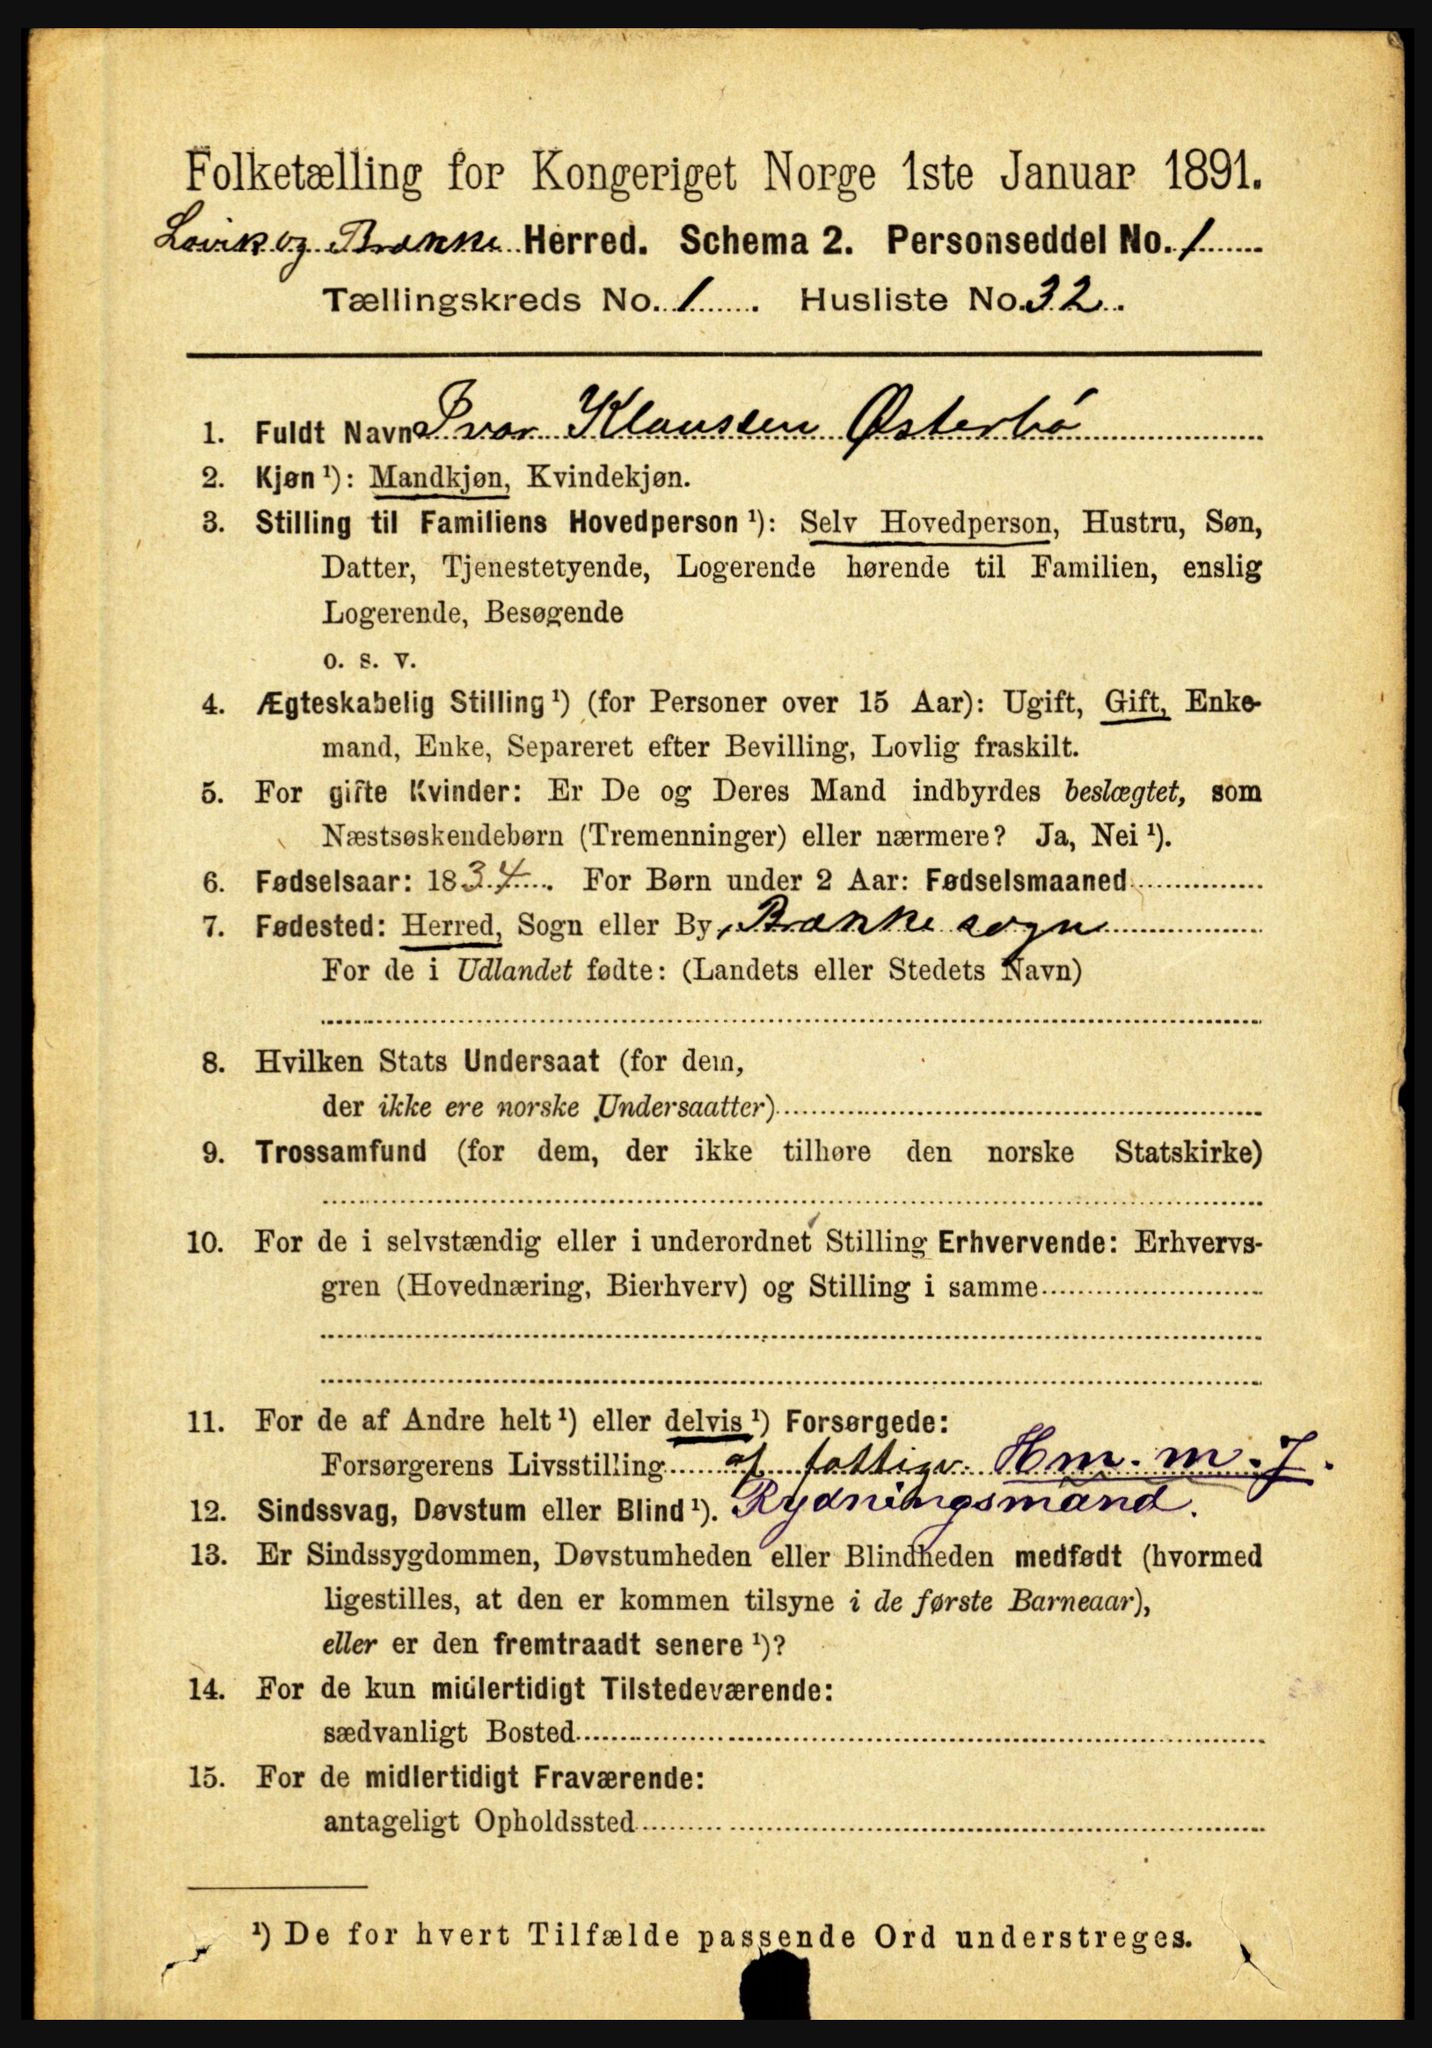 Folketælling for Kongeriget Norge 1ste Januar 1891.
Lavik og Brække Herred. Schema 2. Personseddel No. 1
Tællingskreds No. 1. Husliste No. 32.
1. Fuldt Navn Ivar Klaussen Østerbø
2. Kjøn ¹): Mandkjøn, Kvindekjøn.
3. Stilling til Familiens Hovedperson ¹): Selv Hovedperson, Hustru, Søn,
Datter, Tjenestetyende, Logerende hørende til Familien, enslig
Logerende, Besøgende
o. s. v.
4. Ægteskabelig Stilling ¹) (for Personer over 15 Aar): Ugift, Gift, Enke-
mand, Enke, Separeret efter Bevilling, Lovlig fraskilt.
5. For gifte Kvinder: Er De og Deres Mand indbyrdes beslægtet, som
Næstsøskendebørn (Tremenninger) eller nærmere? Ja, Nei ¹).
6. Fødselsaar: 1834. For Børn under 2 Aar: Fødselsmaaned
7. Fødested: Herred, Sogn eller By, Brække sogn
For de i Udlandet fødte: (Landets eller Stedets Navn)
8. Hvilken Stats Undersaat (for dem,
der ikke ere norske Undersaatter)
9. Trossamfund (for dem, der ikke tilhøre den norske Statskirke)
10. For de i selvstændig eller i underordnet Stilling Erhvervende: Erhvervs-
gren (Hovednæring, Bierhverv) og Stilling i samme
11. For de af Andre helt ¹) eller delvis ¹) Forsørgede:
Forsørgerens Livsstilling af fattigv. Hm. m. J.
12. Sindssvag, Døvstum eller Blind ¹). Rydningsmand.
13. Er Sindssygdommen, Døvstumheden eller Blindheden medfødt (hvormed
ligestilles, at den er kommen tilsyne i de første Barneaar),
eller er den fremtraadt senere ¹)?
14. For de kun midlertidigt Tilstedeværende:
sædvanligt Bosted
15. For de midlertidigt Fraværende:
antageligt Opholdssted
¹) De for hvert Tilfælde passende Ord understreges.